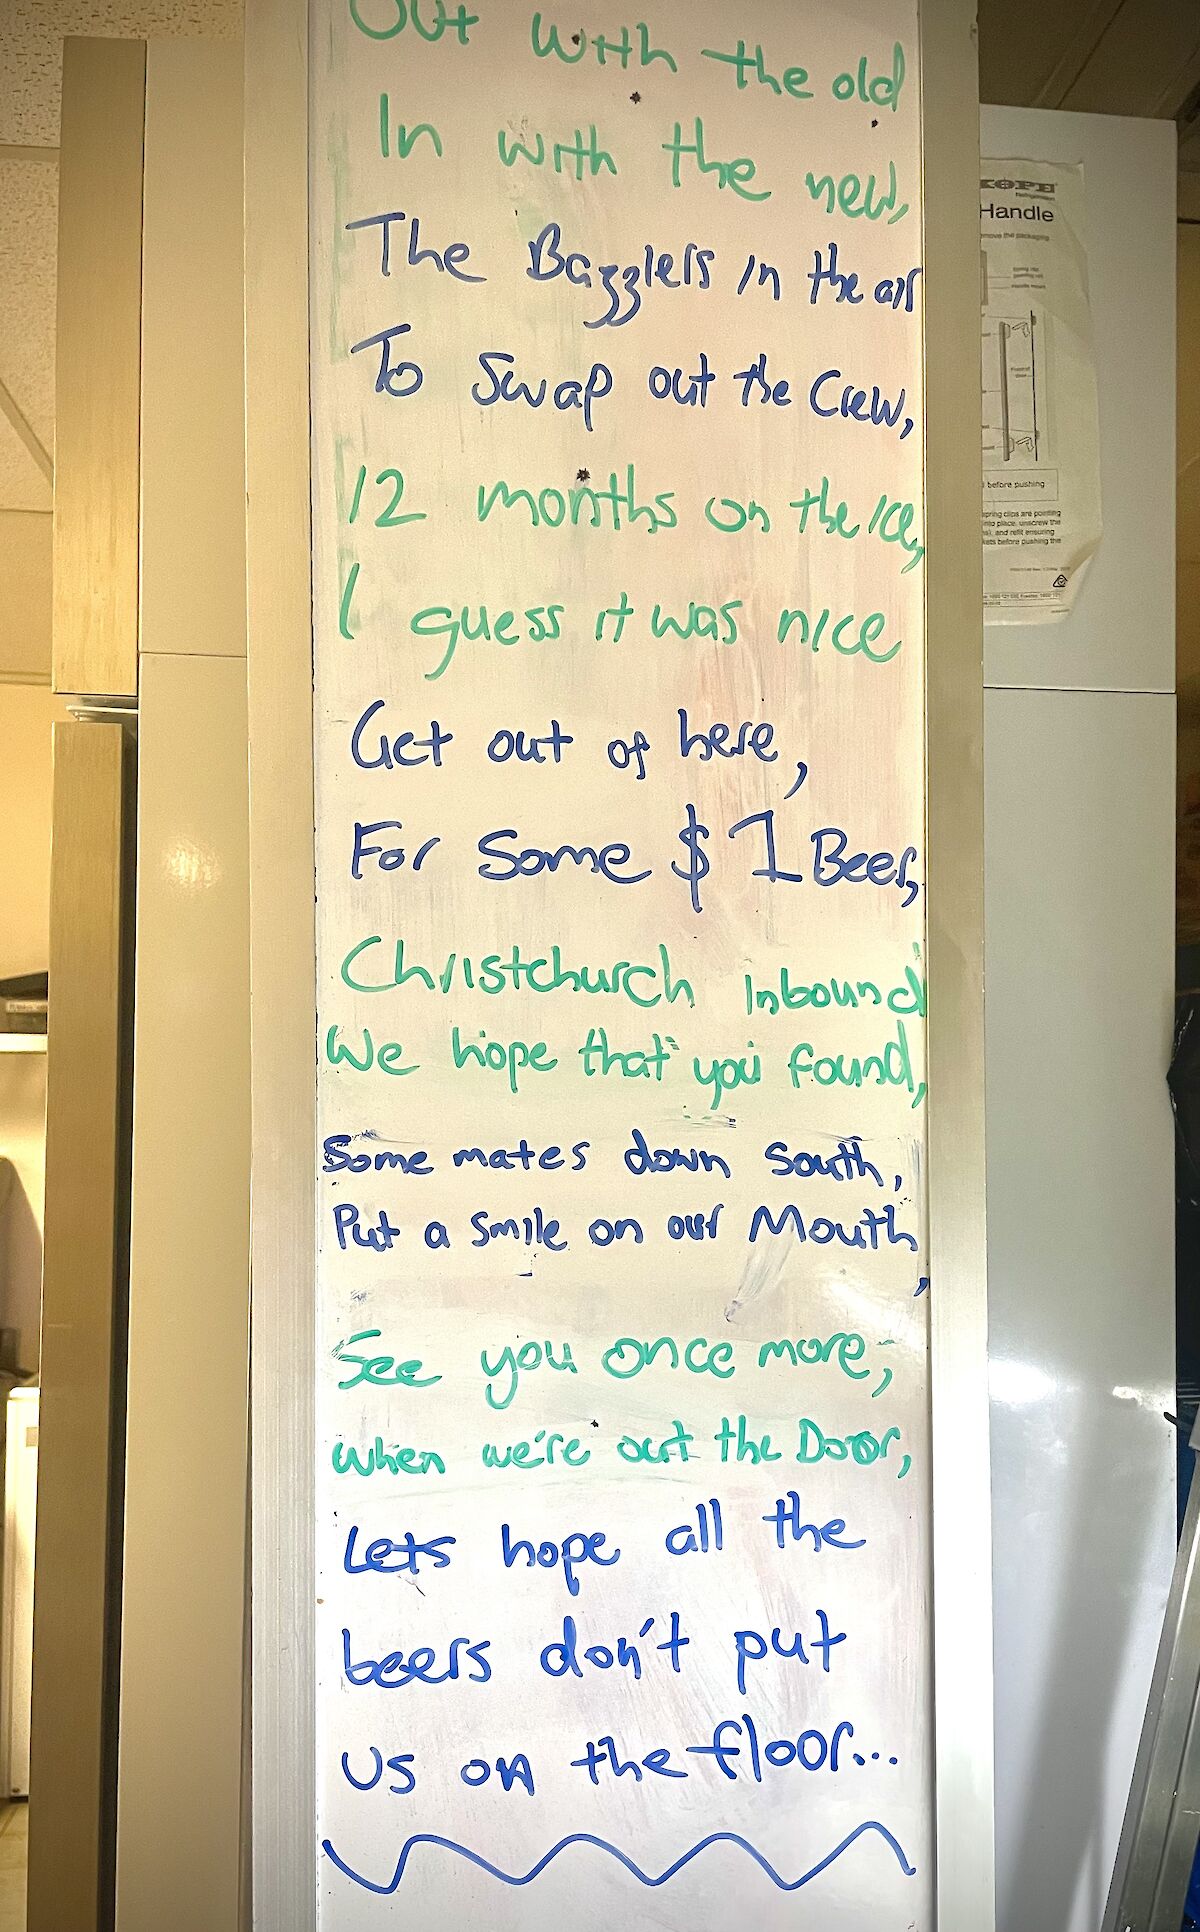 Out with the old
In with the new,
The Bazzlers in the air
To Swap out the Crew,
12 months on the Ice,
I guess it was nice
Get out of here,
For Some $1 Beer,
Christchurch Inbound
We hope that you found,
Some mates down South,
Put a smile on our Mouth,
See you once more,
When we're out the Door,
Lets hope all the
beers don't put
us on the floor...
Handle
before pushing
spring clips are pointing
into place, unscrew the
and refit ensuring
before pushing the